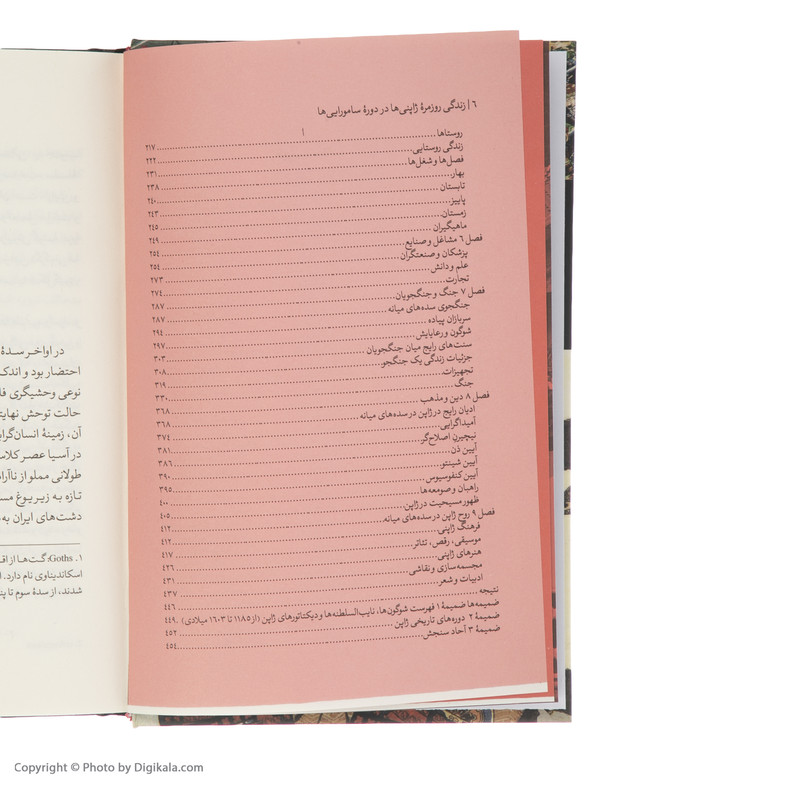 ٦ | زندگی روزمرهٔ ژاپنی‌ها در دورهٔ سامورایی‌ها
روستاها ٢١٧
زندگی روستایی ٢٢٢
فصل‌ها و شغل‌ها ٢٣١
بهار ٢٣٨
تابستان ٢٤٠
پاییز ٢٤٣
زمستان ٢٤٥
ماهیگیران ٢٤٩
فصل ٦ مشاغل و صنایع ٢٥٤
پزشکان و صنعتگران ٢٥٤
علم و دانش ٢٧٣
تجارت ٢٧٤
فصل ٧ جنگ و جنگجویان ٢٨٧
جنگجوی سده‌های میانه ٢٨٧
سربازان پیاده ٢٩٤
شوگون و رعایایش ٢٩٧
سنت‌های رایج میان جنگجویان ٣٠٣
جزئیات زندگی یک جنگجو ٣٠٨
تجهیزات ٣١٩
جنگ ٣٣٠
فصل ٨ دین و مذهب ٣٦٨
ادیان رایج در ژاپن در سده‌های میانه ٣٦٨
آمیداگرایی ٣٧٤
نیچیرنِ اصلاح‌گر ٣٨١
آیین ذن ٣٨٦
آیین شینتو ٣٩٠
آیین کنفوسیوس ٣٩٥
راهبان و صومعه‌ها ٤٠٠
ظهور مسیحیت در ژاپن ٤٠٥
فصل ٩ روح ژاپن در سده‌های میانه ٤١٢
فرهنگ ژاپنی ٤١٢
موسیقی، رقص، تئاتر ٤١٧
هنرهای ژاپنی ٤٢٦
مجسمه‌سازی و نقاشی ٤٣١
ادبیات و شعر ٤٣٧
نتیجه ٤٤٦
ضمیمه‌ها ضمیمهٔ ١ فهرست شوگون‌ها، نایب‌السلطنه‌ها و دیکتاتورهای ژاپن (از ١١٨٥ تا ١٦٠٣ میلادی) ٤٤٩
ضمیمهٔ ٢ دوره‌های تاریخی ژاپن ٤٥٢
ضمیمهٔ ٣ آحاد سنجش ٤٥٤
در اواخر سدهٔ
احتضار بود و اندک
نوعی وحشیگری
حالت توحش نهایتاً
آن، زمینهٔ
در آسیا عصر
طولانی مملو از
تازه به زیر یوغ
دشت‌های ایران
١. Goths: گت‌ها از
اسکاندیناوی نام دارد.
شدند، از سدهٔ سوم تا
Copyright © Photo by Digikala.com